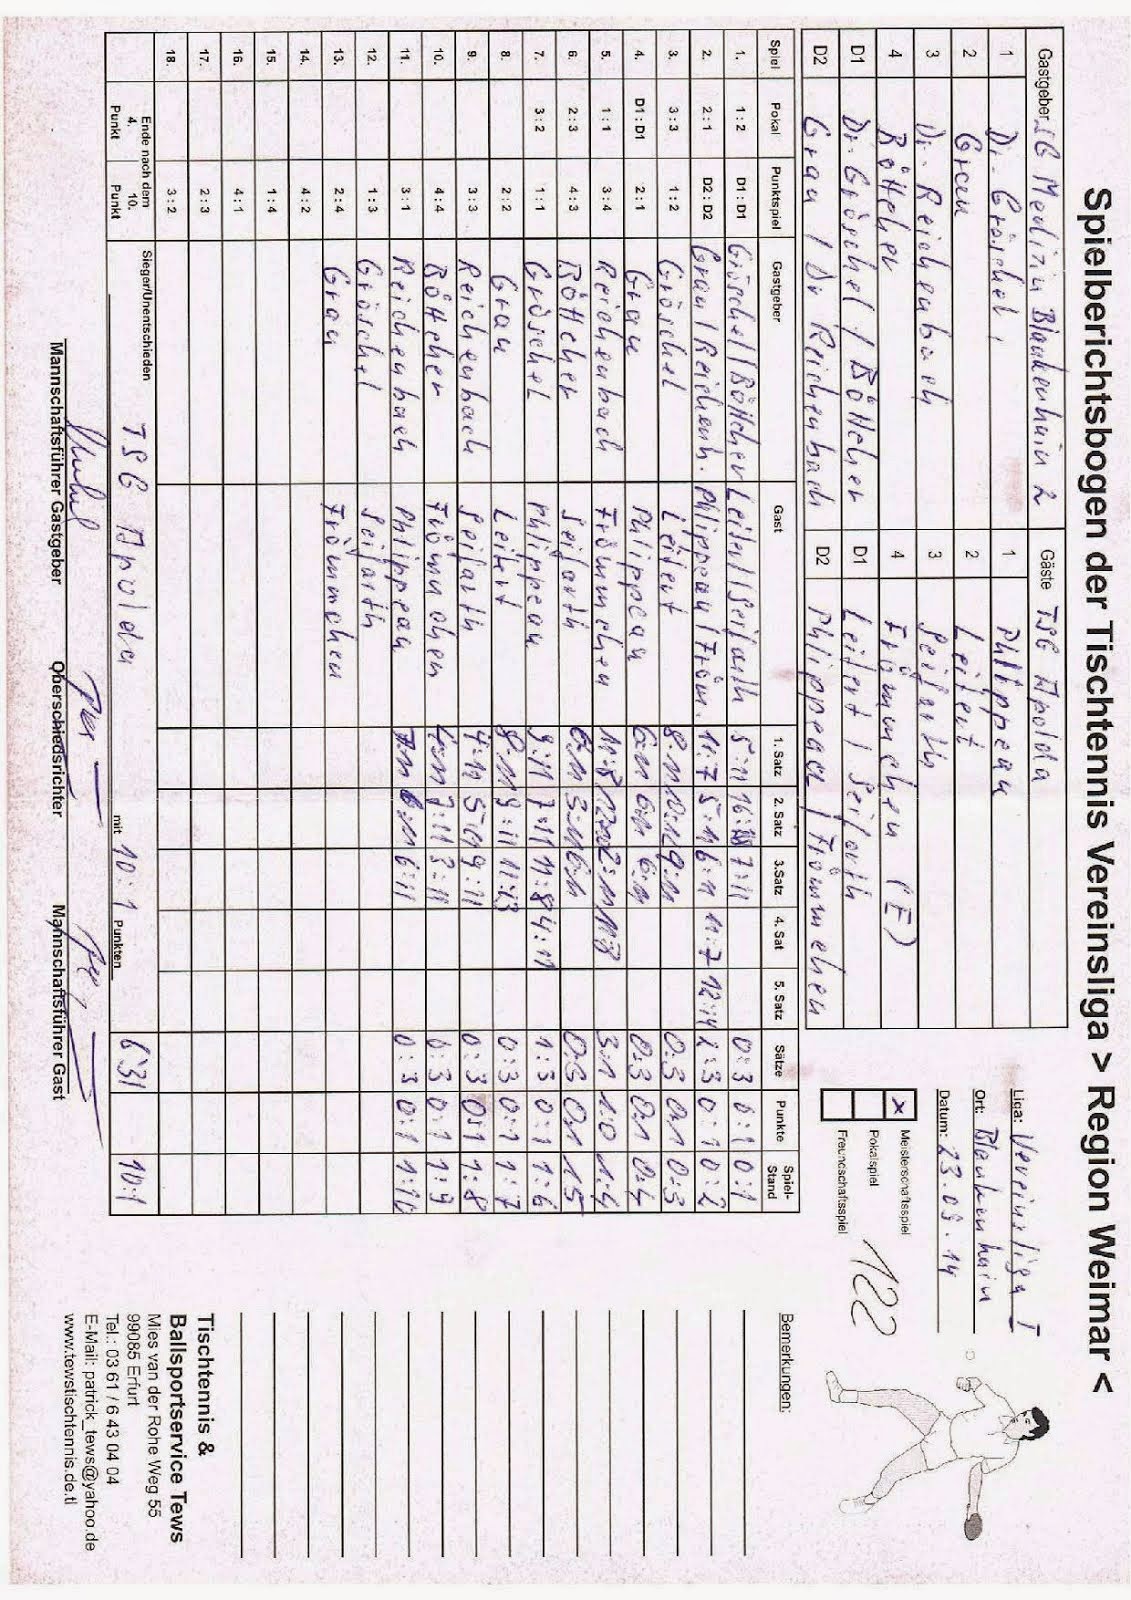 Spielberichtsbogen der Tischtennis Vereinsliga > Region Weimar <
Gastgeber SG Medizin Blankenhain 2 Gäste TSG Apolda
1 Dr. Gröschel 1 Philippeau
2 Grau 2 Leifert
3 Dr. Reichenbach 3 Seifarth
4 Böttcher 4 Frömmchen (E)
D1 Dr. Gröschel / Böttcher D1 Leifert / Seifarth
D2 Grau / Dr Reichenbach D2 Philippeau / Frömmchen
Liga: Vereinsliga I
Ort: Blankenhain
Datum: 23.09.14
x Meisterschaftsspiel
Pokalspiel
Freundschaftsspiel
122
Spiel Pokal Punktspiel Gastgeber Gast 1. Satz 2. Satz 3. Satz 4. Sat 5. Satz Sätze Punkte Spiel-Stand
1. 1 : 2 D1 : D1 Gröschel/Böttcher Leifert/Seifarth 5:11 7:11 0:3 0:1 0:1
2. 2 : 1 D2 : D2 Grau/Reichenb. Philippeau/Fröm. 11:7 5:11 6:11 11:7 12:14 2:3 0:1 0:2
3. 3 : 3 1 : 2 Gröschel Leifert 8:11 10:12 9:11 0:3 0:1 0:3
4. D1 : D1 2 : 1 Grau Philippeau 6:11 6:11 6:11 0:3 0:1 0:4
5. 1 : 1 3 : 4 Reichenbach Frömmchen 11:8 2:11 11:8 3:1 1:0 1:4
6. 2 : 3 4 : 3 Böttcher Seifarth 6:11 3:11 6:11 0:3 0:1 1:5
7. 3 : 2 1 : 1 Gröschel Philippeau 9:11 7:11 11:8 4:11 1:3 0:1 1:6
8. 2 : 2 Grau Leifert 8:11 9:11 11:13 0:3 0:1 1:7
9. 3 : 3 Reichenbach Seifarth 4:11 5:11 9:11 0:3 0:1 1:8
10. 4 : 4 Böttcher Frömmchen 4:11 7:11 3:11 0:3 0:1 1:9
11. 3 : 1 Reichenbach Philippeau 7:11 6:11 6:11 0:3 0:1 1:10
12. 1 : 3 Gröschel Seifarth
13. 2 : 4 Grau Frömmchen
14. 4 : 2
15. 1 : 4
16. 4 : 1
17. 2 : 3
18. 3 : 2
Ende nach dem
4. Punkt 10. Punkt
Sieger/Unentschieden TSG Apolda mit 10:1 Punkten 6:31 10:1
Mannschaftsführer Gastgeber Oberschiedsrichter Mannschaftsführer Gast
Bemerkungen:
Tischtennis &
Ballsportservice Tews
Mies van der Rohe Weg 55
99085 Erfurt
Tel.: 03 61 / 6 43 04 04
E-Mail: patrick_tews@yahoo.de
www.tewstischtennis.de.tl